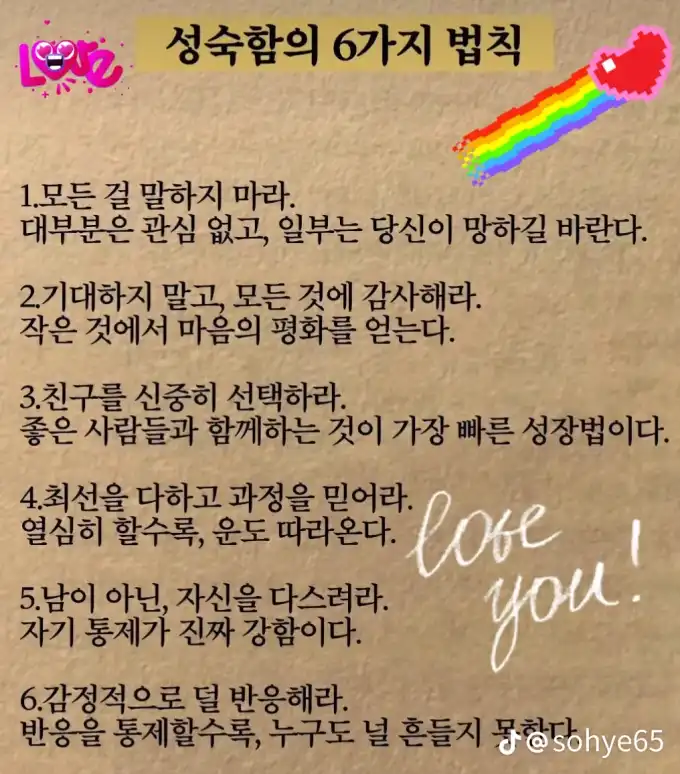 Love
성숙함의 6가지 법칙
1.모든 걸 말하지 마라.
대부분은 관심 없고, 일부는 당신이 망하길 바란다.
2.기대하지 말고, 모든 것에 감사해라.
작은 것에서 마음의 평화를 얻는다.
3.친구를 신중히 선택하라.
좋은 사람들과 함께하는 것이 가장 빠른 성장법이다.
4.최선을 다하고 과정을 믿어라.
열심히 할수록, 운도 따라온다.
love
you!
5.남이 아닌, 자신을 다스려라.
자기 통제가 진짜 강함이다.
6.감정적으로 덜 반응해라.
반응을 통제할수록, 누구도 널 흔들지 못한다
@sohye65